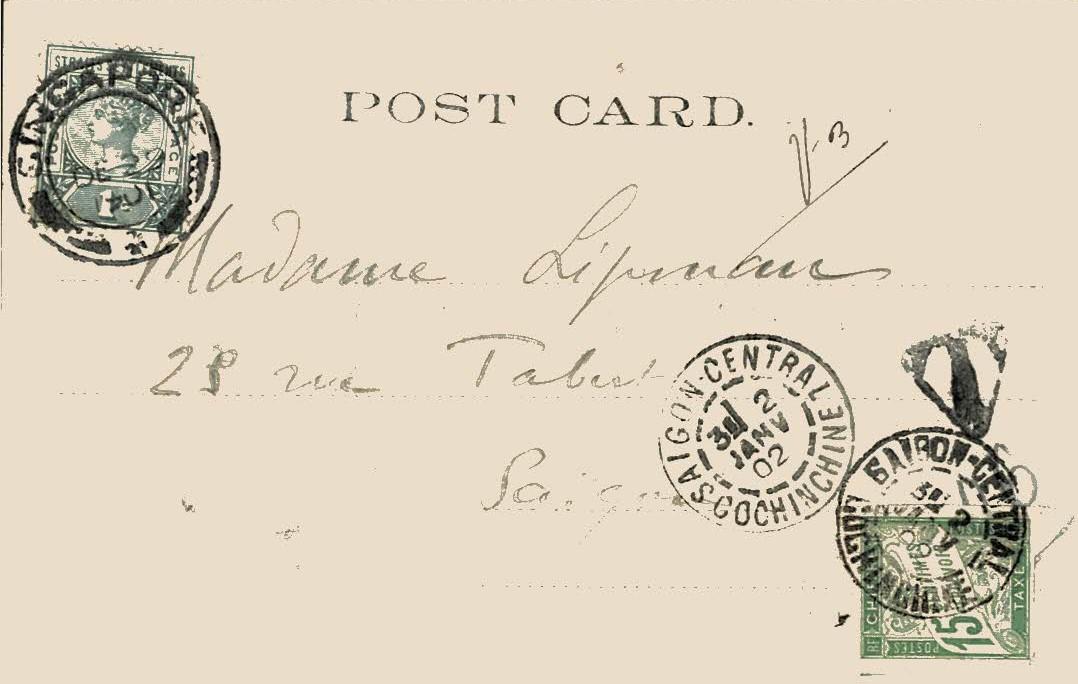 STRAITS SETTLEMENTS
POSTAGE
SINGAPORE
DE 22
1901
1
POST CARD.
Madame Lipman
23 rue Tabert
SAIGON-CENTRAL
3E 2
JANV
02
COCHINCHINE
Saigon
T
SAIGON-CENTRAL
3E 2
JANV
COCHINCHINE
15
CENTIMES
POSTES
TAXE
RF